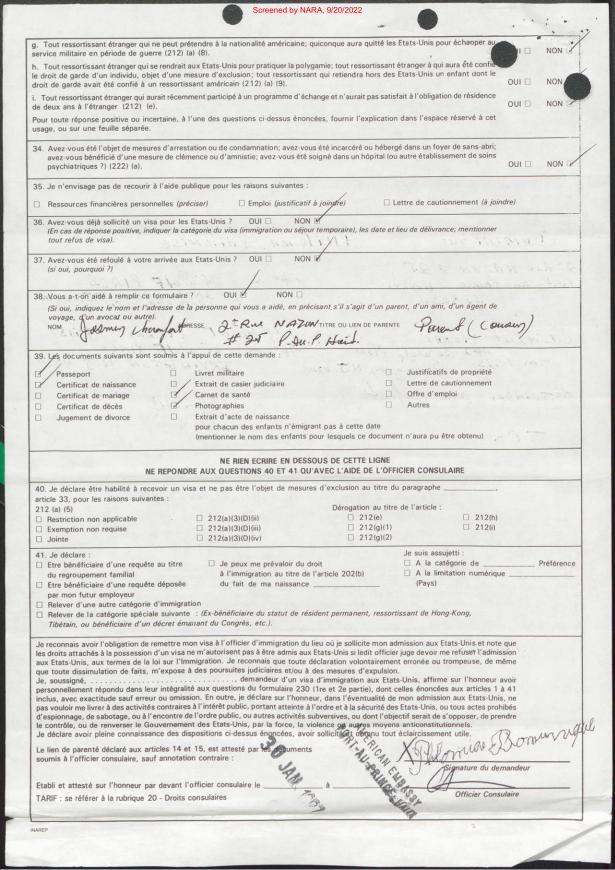 Screened by NARA, 9/20/2022
g. Tout ressortissant étranger qui ne peut prétendre à la nationalité américaine; quiconque aura quitté les Etats-Unis pour échapper au
service militaire en période de guerre (212) (a) (8). OUI ☐ NON ☑
h. Tout ressortissant étranger qui se rendrait aux Etats-Unis pour pratiquer la polygamie; tout ressortissant étranger à qui aura été confié
le droit de garde d'un individu, objet d'une mesure d'exclusion; tout ressortissant qui retiendra hors des Etats-Unis un enfant dont le
droit de garde avait été confié à un ressortissant américain (212) (a) (9). OUI ☐ NON ☑
i. Tout ressortissant étranger qui aurait récemment participé à un programme d'échange et n'aurait pas satisfait à l'obligation de résidence
de deux ans à l'étranger (212) (e). OUI ☐ NON ☑
Pour toute réponse positive ou incertaine, à l'une des questions ci-dessus énoncées, fournir l'explication dans l'espace réservé à cet
usage, ou sur une feuille séparée.
34. Avez-vous été l'objet de mesures d'arrestation ou de condamnation; avez-vous été incarcéré ou hébergé dans un foyer de sans-abri;
avez-vous bénéficié d'une mesure de clémence ou d'amnistie; avez-vous été soigné dans un hôpital (ou autre établissement de soins
psychiatriques ?) (222) (a). OUI ☐ NON ☑
35. Je n'envisage pas de recourir à l'aide publique pour les raisons suivantes :
☐ Ressources financières personnelles (préciser) ☐ Emploi (justificatif à joindre) ☐ Lettre de cautionnement (à joindre)
36. Avez-vous déjà sollicité un visa pour les Etats-Unis ? OUI ☐ NON ☑
(En cas de réponse positive, indiquer la catégorie du visa (immigration ou séjour temporaire), les date et lieu de délivrance; mentionner
tout refus de visa).
37. Avez-vous été refoulé à votre arrivée aux Etats-Unis ? OUI ☐ NON ☑
(si oui, pourquoi ?)
38. Vous a-t-on aidé à remplir ce formulaire ? OUI ☑ NON ☐
(Si oui, indiquez le nom et l'adresse de la personne qui vous a aidé, en précisant s'il s'agit d'un parent, d'un ami, d'un agent de
voyage, d'un avocat ou autre).
NOM ADRESSE 2e Rue NAZON TITRE OU LIEN DE PARENTE Parent (Cousin)
P.Au.P. Haiti
39. Les documents suivants sont soumis à l'appui de cette demande :
☑ Passeport ☐ Livret militaire ☐ Justificatifs de propriété
☑ Certificat de naissance ☐ Extrait de casier judiciaire ☐ Lettre de cautionnement
☐ Certificat de mariage ☑ Carnet de santé ☐ Offre d'emploi
☐ Certificat de décès ☑ Photographies ☐ Autres
☐ Jugement de divorce ☐ Extrait d'acte de naissance
pour chacun des enfants n'émigrant pas à cette date
(mentionner le nom des enfants pour lesquels ce document n'aura pu être obtenu)
NE RIEN ECRIRE EN DESSOUS DE CETTE LIGNE
NE REPONDRE AUX QUESTIONS 40 ET 41 QU'AVEC L'AIDE DE L'OFFICIER CONSULAIRE
40. Je déclare être habilité à recevoir un visa et ne pas être l'objet de mesures d'exclusion au titre du paragraphe ,
article 33, pour les raisons suivantes :
212 (a) (5) Dérogation au titre de l'article :
☐ Restriction non applicable ☐ 212(a)(3)(D)(ii) ☐ 212(e) ☐ 212(h)
☐ Exemption non requise ☐ 212(a)(3)(D)(iii) ☐ 212(g)(1) ☐ 212(i)
☐ Jointe ☐ 212(a)(3)(D)(iv) ☐ 212(g)(2)
41. Je déclare : Je suis assujeti :
☐ Etre bénéficiaire d'une requête au titre ☐ Je peux me prévaloir du droit ☐ A la catégorie de Préférence
du regroupement familial à l'immigration au titre de l'article 202(b) ☐ A la limitation numérique
☐ Etre bénéficiaire d'une requête déposée du fait de ma naissance (Pays)
par mon futur employeur
☐ Relever d'une autre catégorie d'immigration
☐ Relever de la catégorie spéciale suivante : (Ex-bénéficiaire du statut de résident permanent, ressortissant de Hong-Kong,
Tibétain, ou bénéficiaire d'un décret émanant du Congrès, etc.).
Je reconnais avoir l'obligation de remettre mon visa à l'officier d'immigration du lieu où je sollicite mon admission aux Etats-Unis et note que
les droits attachés à la possession d'un visa ne m'autorisent pas à être admis aux Etats-Unis si ledit officier juge devoir me refuser l'admission
aux Etats-Unis, aux termes de la loi sur l'Immigration. Je reconnais que toute déclaration volontairement erronée ou trompeuse, de même
que toute dissimulation de faits, m'expose à des poursuites judiciaires et/ou à des mesures d'expulsion.
Je, soussigné, demandeur d'un visa d'immigration aux Etats-Unis, affirme sur l'honneur avoir
personnellement répondu dans leur intégralité aux questions du formulaire 230 (1re et 2e partie), dont celles énoncées aux articles 1 à 41
inclus, avec exactitude sauf erreur ou omission. En outre, je déclare sur l'honneur, dans l'éventualité de mon admission aux Etats-Unis, ne
pas vouloir me livrer à des activités contraires à l'intérêt public, portant atteinte à l'ordre et à la sécurité des Etats-Unis, ou tous actes prohibés
d'espionnage, de sabotage, ou à l'encontre de l'ordre public, ou autres activités subversives, ou dont l'objectif serait de s'opposer, de prendre
le contrôle, ou de renverser le Gouvernement des Etats-Unis, par la force, la violence ou autres moyens anticonstitutionnels.
Je déclare avoir pleine connaissance des dispositions ci-dessus énoncées, avoir sollicité et obtenu tout éclaircissement utile.
Le lien de parenté déclaré aux articles 14 et 15, est attesté par les documents
soumis à l'officier consulaire, sauf annotation contraire :
30 JAN. 1987
AMERICAN EMBASSY
PORT-AU-PRINCE, Haiti
Signature du demandeur
Etabli et attesté sur l'honneur par devant l'officier consulaire le à
Officier Consulaire
TARIF : se référer à la rubrique 20 - Droits consulaires
INAREP